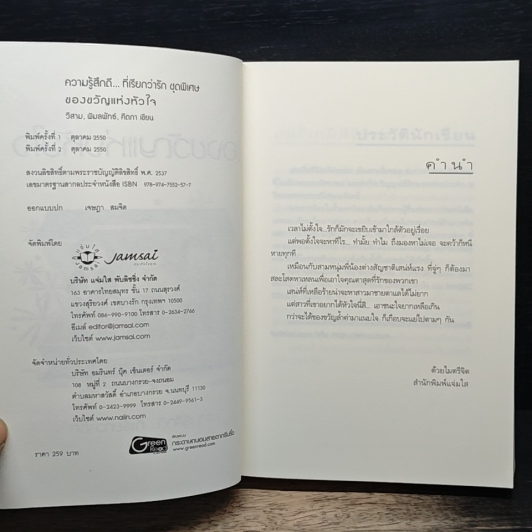 ความรู้สึกดี... ที่เรียกว่ารัก ชุดพิเศษ
ของขวัญแห่งหัวใจ
วิสาม, พิมลพัทธ์, คิตกา เขียน
พิมพ์ครั้งที่ 1 ตุลาคม 2550
พิมพ์ครั้งที่ 2 ตุลาคม 2550
สงวนลิขสิทธิ์ตามพระราชบัญญัติลิขสิทธิ์ พ.ศ. 2537
เลขมาตรฐานสากลประจำหนังสือ ISBN 978-974-7552-57-7
ออกแบบปก เจษฎา สมจิต
จัดพิมพ์โดย
jamsai
บริษัท แจ่มใส พับลิชชิ่ง จำกัด
163 อาคารไทยสมุทร ชั้น 17 ถนนสุรวงศ์
แขวงสุริยวงศ์ เขตบางรัก กรุงเทพฯ 10500
โทรศัพท์ 086-990-9100 โทรสาร 0-2634-2766
อีเมล์ editor@jamsai.com
เว็บไซต์ www.jamsai.com
จัดจำหน่ายทั่วประเทศโดย
บริษัท อมรินทร์ บุ๊ค เซ็นเตอร์ จำกัด
108 หมู่ที่ 2 ถนนบางกรวย-จงถนอม
ตำบลมหาสวัสดิ์ อำเภอบางกรวย จ.นนทบุรี 11130
โทรศัพท์ 0-2423-9999 โทรสาร 0-2449-9561-3
เว็บไซต์ www.naiin.com
ราคา 259 บาท
Green Read
กระดาษถนอมสายตากรีนรี้ด
www.greenread.com
คำนำ
เวลาไม่ตั้งใจ...รักก็มักจะเขยิบเข้ามาใกล้ตัวอยู่เรื่อย
แต่พอตั้งใจจะหาทีไร... ทำมั้ย ทำไม ถึงมองหาไม่เจอ จะคว้าก็หนี
หายทุกที
เหมือนกับสามหนุ่มพี่น้องต่างสัญชาติเสน่ห์แรง ที่จู่ๆ ก็ต้องมา
สละโสดหาเหลนเพื่อเอาใจคุณตาสุดที่รักของพวกเขา
เสน่ห์ที่เหลือร้ายน่าจะหาสาวมาชายตาแลได้ไม่ยาก
แต่สาวที่เขาอยากได้หัวใจนี่สิ... เอาชนะใจยากเหลือเกิน
กว่าจะได้ของขวัญล้ำค่ามาแนบใจ ก็เกือบจะแย่ไปตามๆ กัน
ด้วยไมตรีจิต
สำนักพิมพ์แจ่มใส